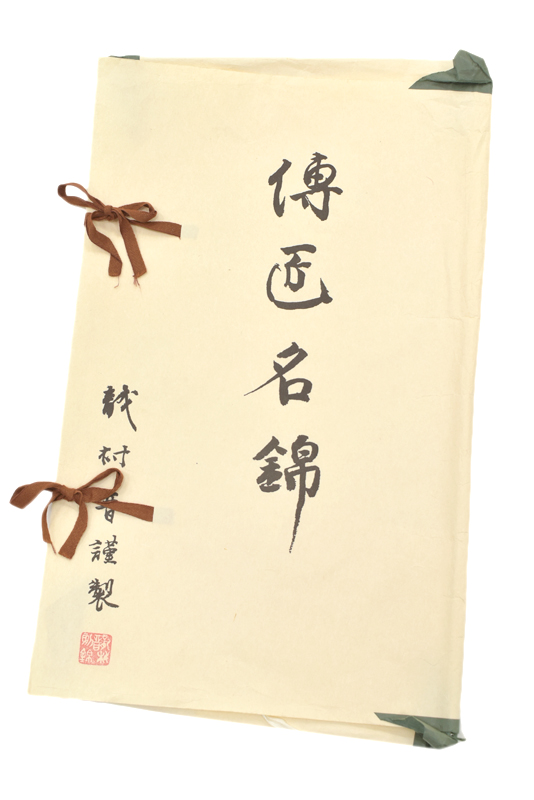 傳匠名錦
龍村晋謹製